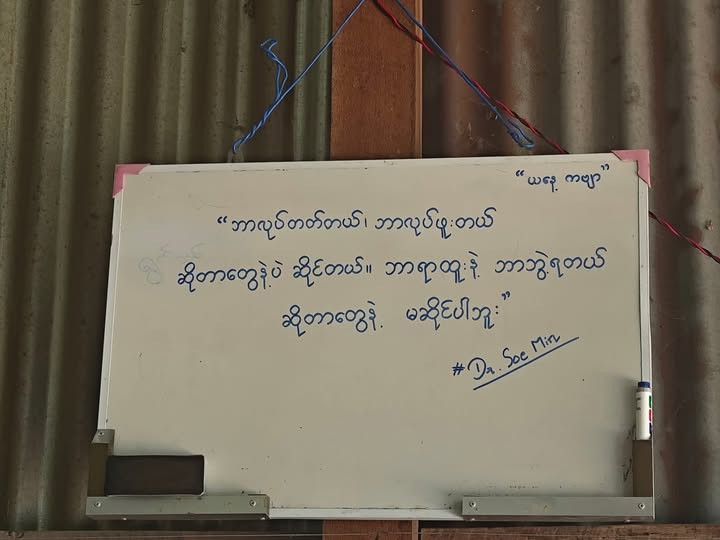 “ယနေ့ ကဗျာ”
“ဘာလုပ်တတ်တယ်၊ ဘာလုပ်ဖူးတယ်
ဆိုတာတွေနဲ့ပဲ ဆိုင်တယ်။ ဘာရာထူးနဲ့ ဘာဘွဲ့ရတယ်
ဆိုတာတွေနဲ့ မဆိုင်ပါဘူး”
#Dr. Soe Min